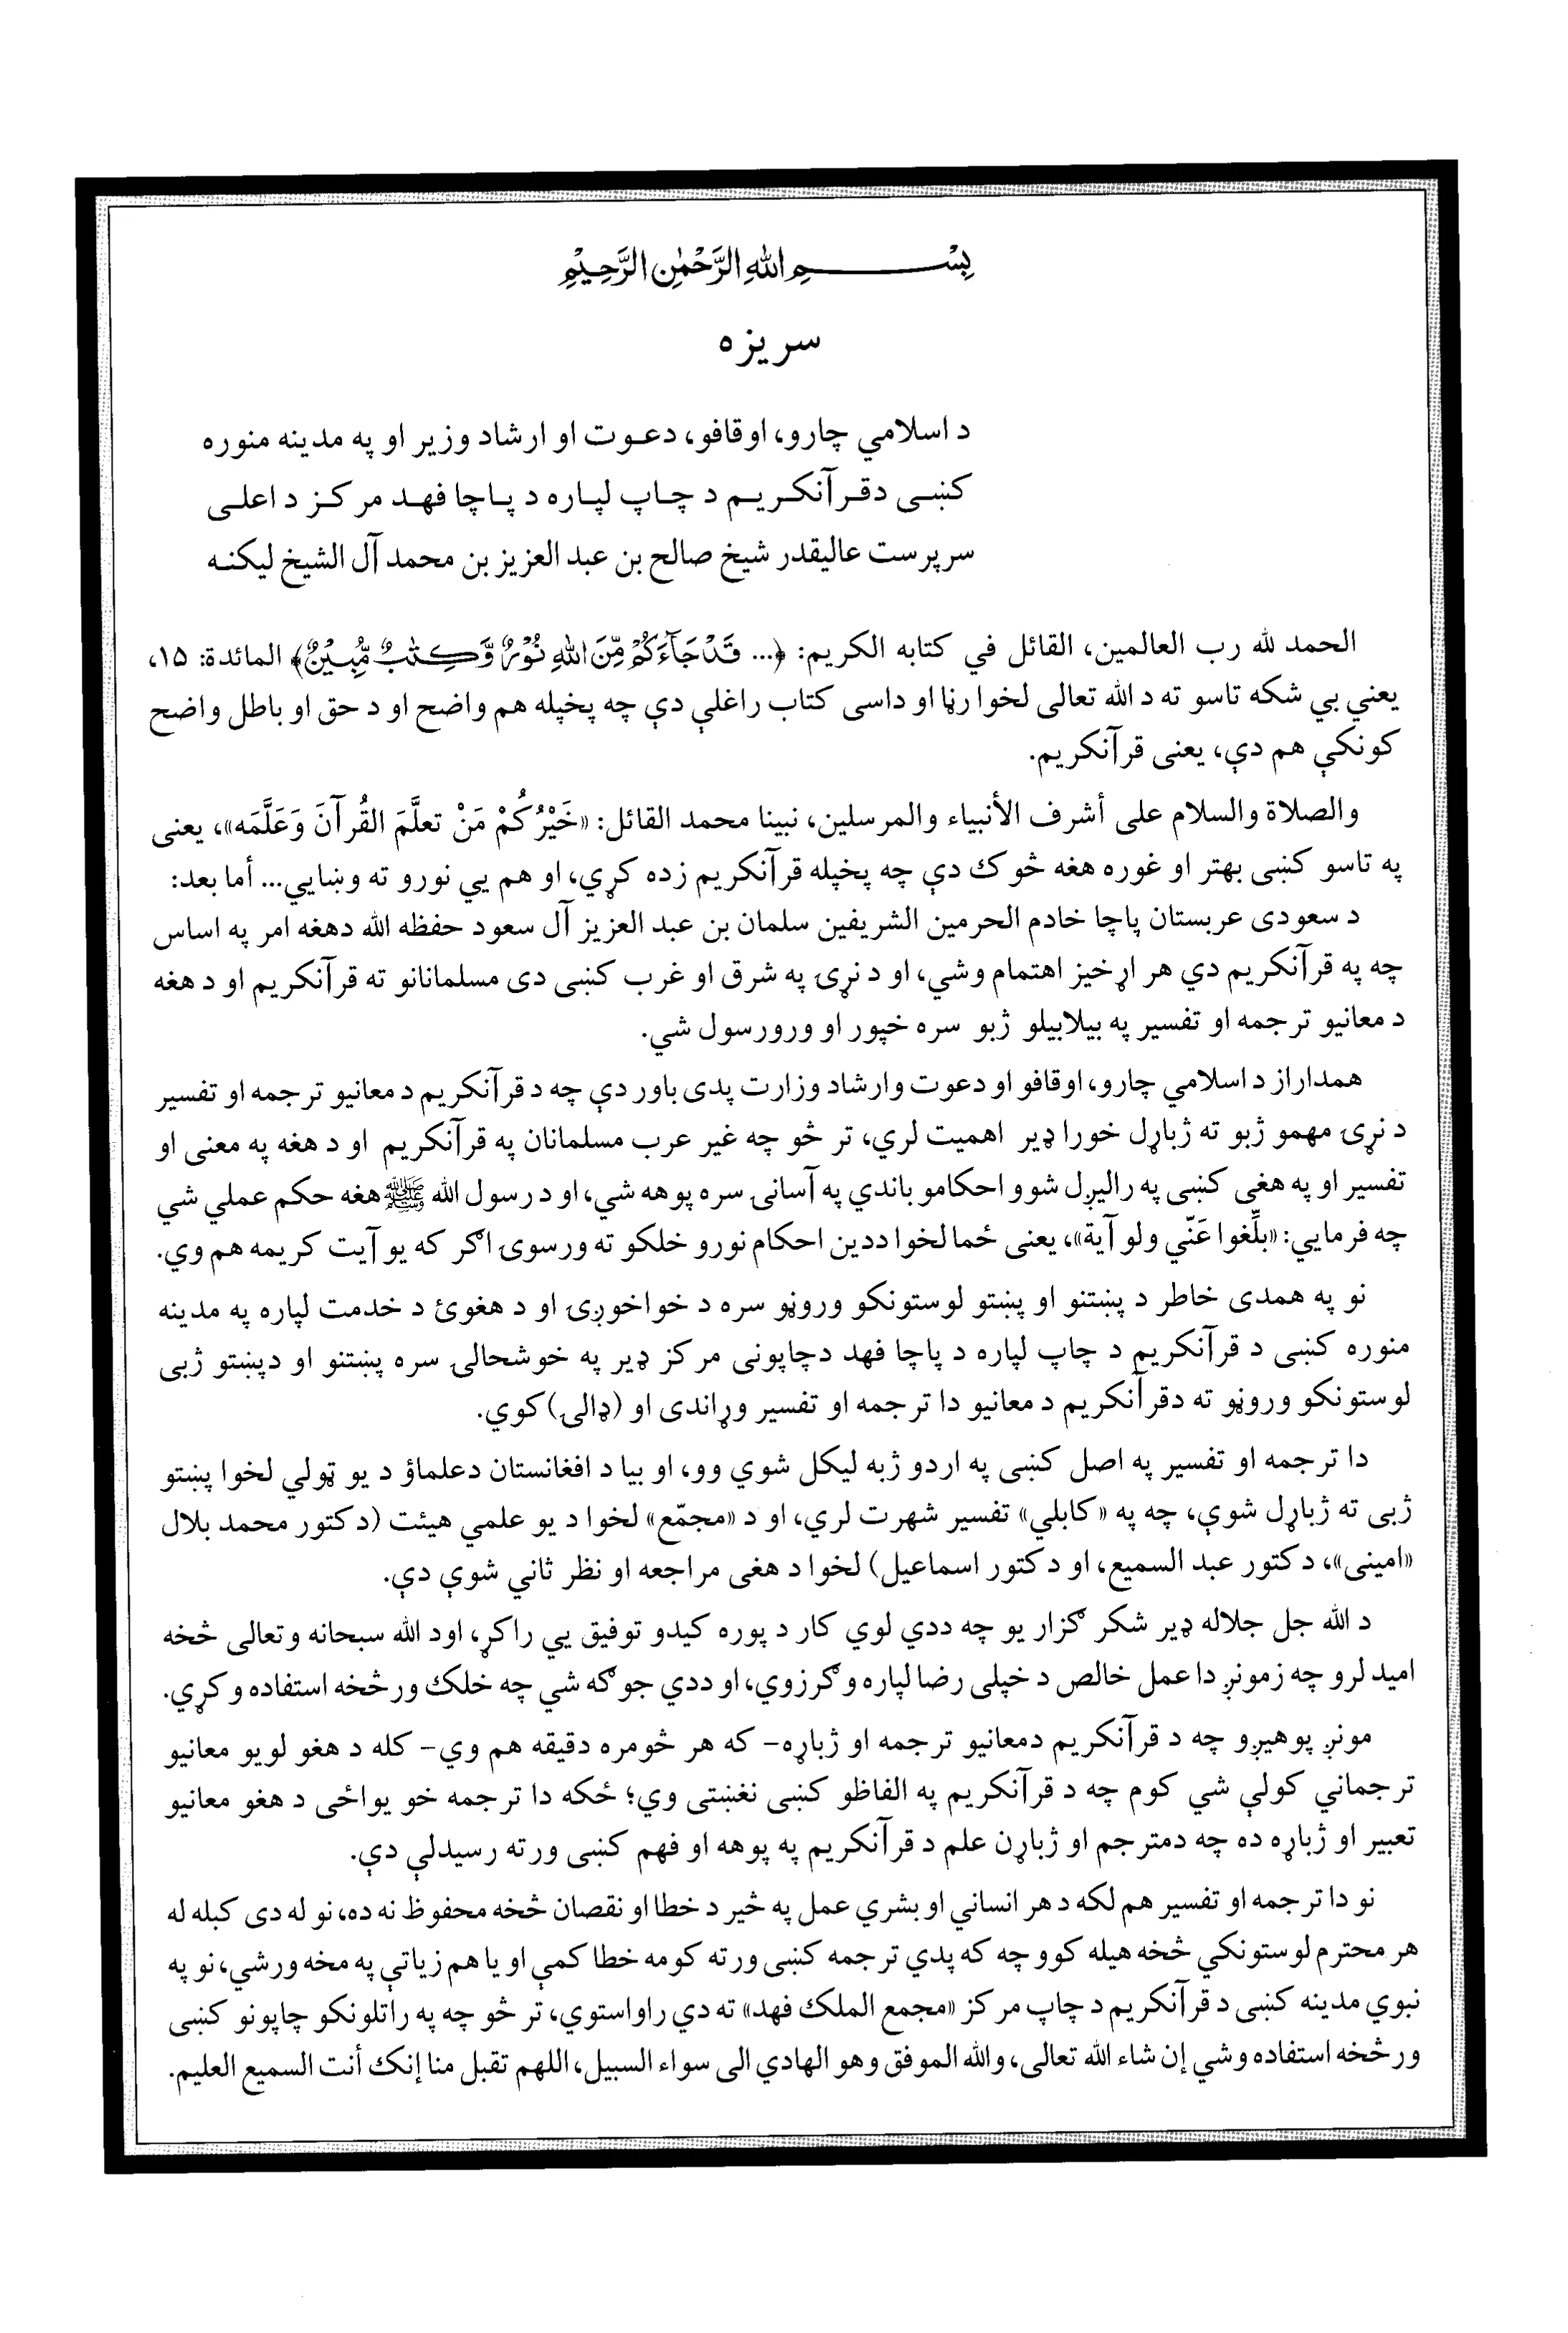 بِسْــــــــمِ اللهِ الرَّحْمٰنِ الرَّحِيْمِ
سريزه
د اسلامي چارو، اوقافو، دعـوت او ارشاد وزير او په مدينه منوره
كښـى دقـرآنكـريـم د چـاپ لپـاره د پـاچا فهـد مركـز د اعلـى
سرپرست عاليقدر شيخ صالح بن عبد العزيز بن محمد آل الشيخ ليكنـه
الحمد لله رب العالمين، القائل في كتابه الكريم: ﴿... قَدْ جَآءَكُمْ مِّنَ اللهِ نُوْرٌ وَّكِتٰبٌ مُّبِيْنٌ﴾ المائدة: ۱۵،
يعني بي شكه تاسو ته د الله تعالى لخوا رڼا او داسى كتاب راغلې دې چه پخپله هم واضح او د حق او باطل واضح
كونكې هم دې، يعنى قرآنكريم.
والصلاة والسلام على أشرف الأنبياء والمرسلين، نبينا محمد القائل: «خَيْرُكُمْ مَنْ تعلَّمَ القُرآنَ وَعَلَّمَه»، يعنى
په تاسو كښى بهتر او غوره هغه څوك دې چه پخپله قرآنكريم زده كړي، او هم يي نورو ته وښايي... أما بعد:
د سعودى عربستان پاچا خادم الحرمين الشريفين سلمان بن عبد العزيز آل سعود حفظه الله دهغه امر په اساس
چه په قرآنكريم دي هر اړخيز اهتمام وشي، او د نړۍ په شرق او غرب كښى دى مسلمانانو ته قرآنكريم او د هغه
د معانيو ترجمه او تفسير په بيلابيلو ژبو سره خپور او ورورسول شي.
همداراز د اسلامي چارو، اوقافو او دعوت وارشاد وزارت پدى باور دې چه د قرآنكريم د معانيو ترجمه او تفسير
د نړۍ مهمو ژبو ته ژباړل خورا ډير اهميت لري، تر څو چه غير عرب مسلمانان په قرآنكريم او د هغه په معنى او
تفسير او په هغى كښى په راليږل شوو احكامو باندي په آسانۍ سره پوهه شي، او د رسول الله ﷺ هغه حكم عملي شي
چه فرمايي: «بلِّغوا عَنّي ولو آية»، يعنى ځما لخوا ددين احكام نورو خلكو ته ورسوۍ اګر كه يو آيت كريمه هم وي.
نو په همدى خاطر د پښتنو او پښتو لوستونكو وروڼو سره د خواخوږۍ او د هغوئ د خدمت لپاره په مدينه
منوره كښى د قرآنكريم د چاپ لپاره د پاچا فهد دچاپونى مركز ډير په خوشحالۍ سره پښتنو او دپښتو ژبى
لوستونكو وروڼو ته دقرآنكريم د معانيو دا ترجمه او تفسير وړاندى او (ډالۍ) كوي.
دا ترجمه او تفسير په اصل كښى په اردو ژبه ليكل شوي وو، او بيا د افغانستان دعلماؤ د يو ټولي لخوا پښتو
ژبى ته ژباړل شوې، چه په «كابلي» تفسير شهرت لري، او د «مجمّع» لخوا د يو علمي هيئت (دكتور محمد بلال
«امينى»، دكتور عبد السميع، او دكتور اسماعيل) لخوا د هغى مراجعه او نظر ثاني شوې دې.
د الله جل جلاله ډير شكر ګزار يو چه ددي لوي كار د پوره كيدو توفيق يي راكړ، اود الله سبحانه وتعالى څخه
اميد لرو چه زمونږ دا عمل خالص د خپلى رضا لپاره وګرزوي، او ددي جوګه شي چه خلك ورڅخه استفاده وكړي.
مونږ پوهيږو چه د قرآنكريم دمعانيو ترجمه او ژباړه– كه هر څومره دقيقه هم وي– كله د هغو لويو معانيو
ترجماني كولې شي كوم چه د قرآنكريم په الفاظو كښى نغښتى وي؛ ځكه دا ترجمه خو يواځى د هغو معانيو
تعبير او ژباړه ده چه دمترجم او ژباړن علم د قرآنكريم په پوهه او فهم كښى ورته رسيدلې دې.
نو دا ترجمه او تفسير هم لكه د هر انساني او بشري عمل په څير د خطا او نقصان څخه محفوظ نه ده، نو له دى كبله له
هر محترم لوستونكي څخه هيله كوو چه كه پدي ترجمه كښى ورته كومه خطا كمې او يا هم زياتې په مخه ورشي، نو په
نبوي مدينه كښى د قرآنكريم د چاپ مركز «مجمع الملك فهد» ته دي راواستوي، تر څو چه په راتلونكو چاپونو كښى
ورڅخه استفاده وشي إن شاء الله تعالى، والله الموفق وهو الهادي الى سواء السبيل، اللهم تقبل منا إنك أنت السميع العليم.